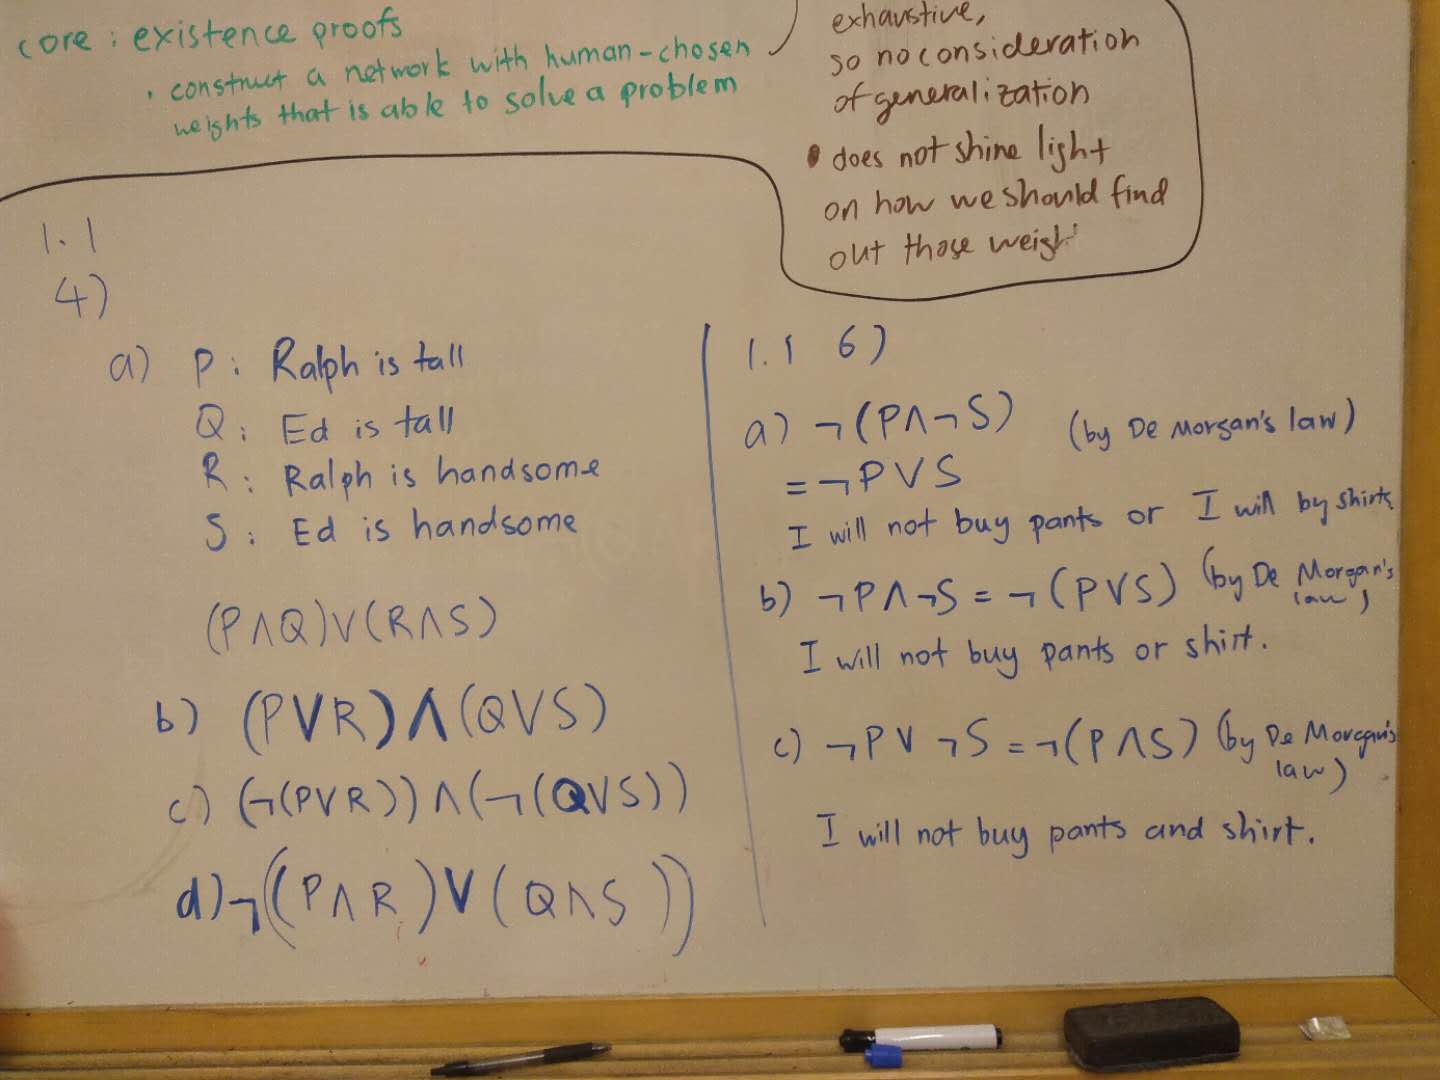 core : existence proofs
· construct a network with human-chosen
weights that is able to solve a problem
exhaustive,
so no consideration
of generalization
• does not shine light
on how we should find
out those weigh
1.1
4)
a) P : Ralph is tall
Q : Ed is tall
R : Ralph is handsome
S : Ed is handsome
(P∧Q)∨(R∧S)
b) (P∨R)∧(Q∨S)
c) (¬(P∨R))∧(¬(Q∨S))
d) ¬((P∧R)∨(Q∧S))
1.1 6)
a) ¬(P∧¬S) (by De Morgan's law)
= ¬P∨S
I will not buy pants or I will by shirts
b) ¬P∧¬S = ¬(P∨S) (by De Morgan's
law)
I will not buy pants or shirt.
c) ¬P∨¬S = ¬(P∧S) (by De Morgan's
law)
I will not buy pants and shirt.